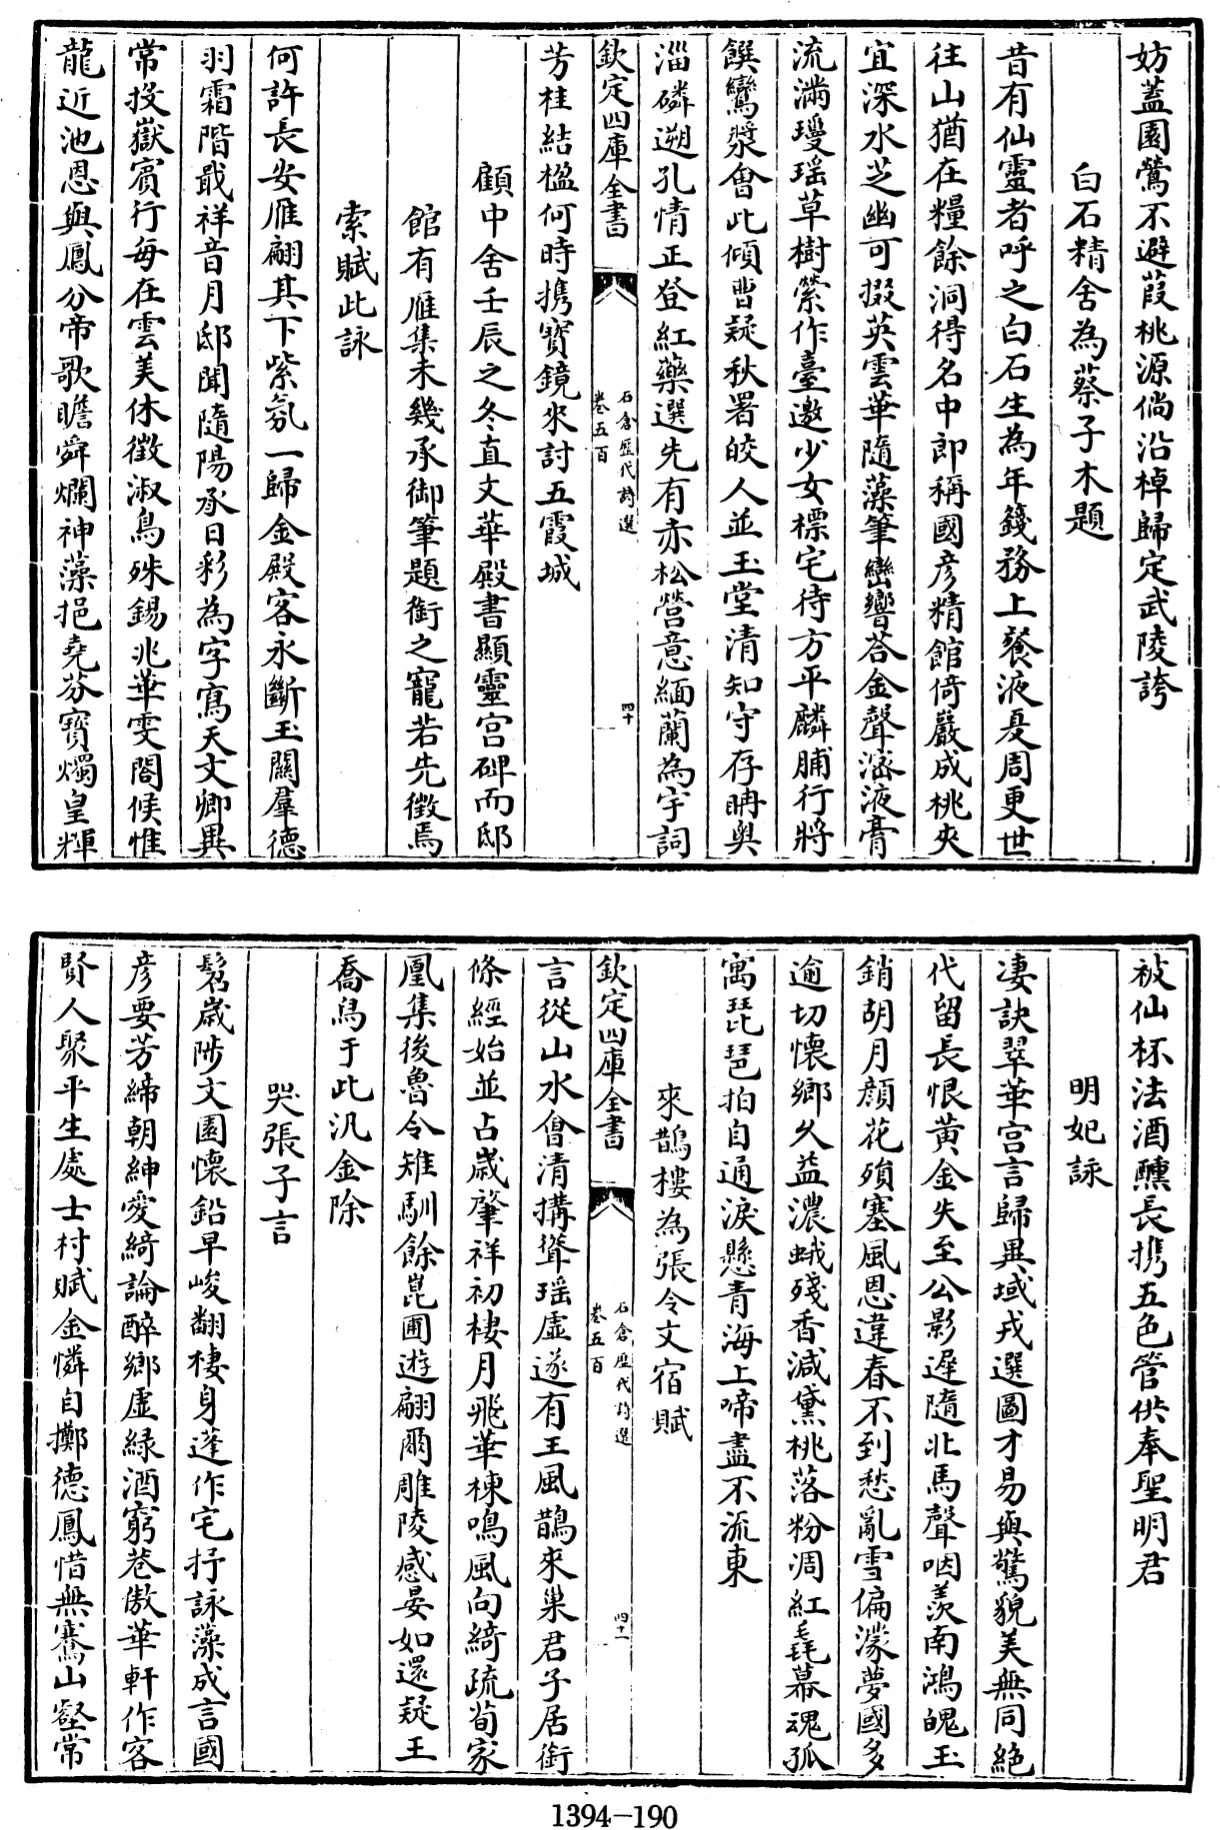 妨蓋園鶯不避葭桃源倘沿棹歸定武陵誇
白石精舍為蔡子木題
昔有仙靈者呼之白石生為年錢務上餐液戛周更世
往山猶在糧餘洞得名中郎稱國彦精館倚巖成桃夾
宜深水芝幽可掇英雲華隨藻筆巒響荅金聲滋液膏
流滿瓊瑶草樹縈作臺邀少女標宅待方平麟脯行將
饌鸞漿會此傾曹疑秋署皎人並玉堂清知守存晴奥
淄磷遡孔情正登紅藥選先有赤松營意緬蘭為宇詞
欽定四庫全書
石倉歷代詩選
卷五百
四十
芳桂結楹何時携寶鏡來討五霞城
顧中舍壬辰之冬直文華殿書顯靈宫碑而邸
館有雁集未幾承御筆題銜之寵若先徵焉
索賦此詠
何許長安雁翩其下紫氛一歸金殿客永斷玉關羣德
羽霜階戢祥音月邸聞隨陽承日彩為字寫天文卿異
常投嶽賓行每在雲美休徵淑鳥殊錫兆華雯閣候惟
龍近池恩與鳳分帝歌瞻舜爛神藻挹堯芬寶燭皇輝
被仙杯法酒醺長携五色管供奉聖明君
明妃詠
凄訣翠華宫言歸異域戎選圖才易與驚貌美無同絶
代留長恨黄金失至公影遲隨北馬聲咽羨南鴻魄玉
銷胡月顔花殞塞風恩違春不到愁亂雪偏濛夢國多
逾切懷鄉久益濃蛾殘香減黛桃落粉凋紅毳幕魂孤
寓琵琶拍自通淚懸青海上啼盡不流東
來鵲樓為張令文宿賦
欽定四庫全書
石倉歷代詩選
卷五百
四十一
言從山水㑹清搆聳瑶虚遂有王風鵲來巢君子居銜
條經始並占歲肇祥初棲月飛華棟鳴風向綺疏荀家
凰集後魯令雉馴餘崑圃遊翩爾雕陵感晏如還疑王
喬舄于此汎金除
哭張子言
髫歲陟文園懷鉛早峻翻棲身蓬作宅抒詠藻成言國
彦要芳締朝紳愛綺論醉鄉虚緑酒窮巷傲華軒作客
賢人聚平生處士村賦金憐自擲德鳳惜無騫山壑常
1394-190